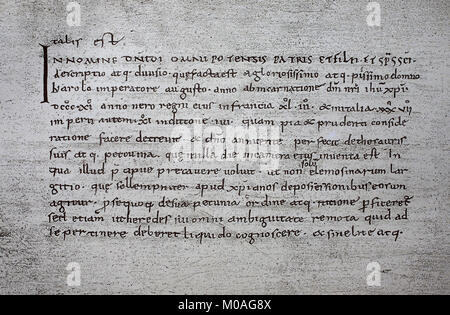 talis est
IN NOMINE DNI DI OMNIPOTENSIS PATRIS ET FILII ET SPS SCI
descriptio atq; diuisio que facta est a gloriosissimo atq; piissimo domno
karolo imperatore augusto anno ab incarnatione dni nri ihu xpi
DCCCXI anno uero regni eius in francia XLIII et in italia XXXVII
imperii autem XI indictione IIII quam pia et prudenti conside
ratione facere decreuit et dno annuente perfecit de thesauris
suis atq; pecunia que in illa die in camera eius inuenta est In
qua illud p cauere uoluit ut non solu elemosinarum lar
gitio que sollempniter apud xpianos de possessionibus eorum
agitur p se quoq; de sua pecunia ordine atq; ratione pficeret
sed etiam ut heredes sui omni ambiguitate remota quid ad
se pertinere deberet liquido cognoscere et sine lite atq;
alamy
Image ID: M0AG8X
www.alamy.com